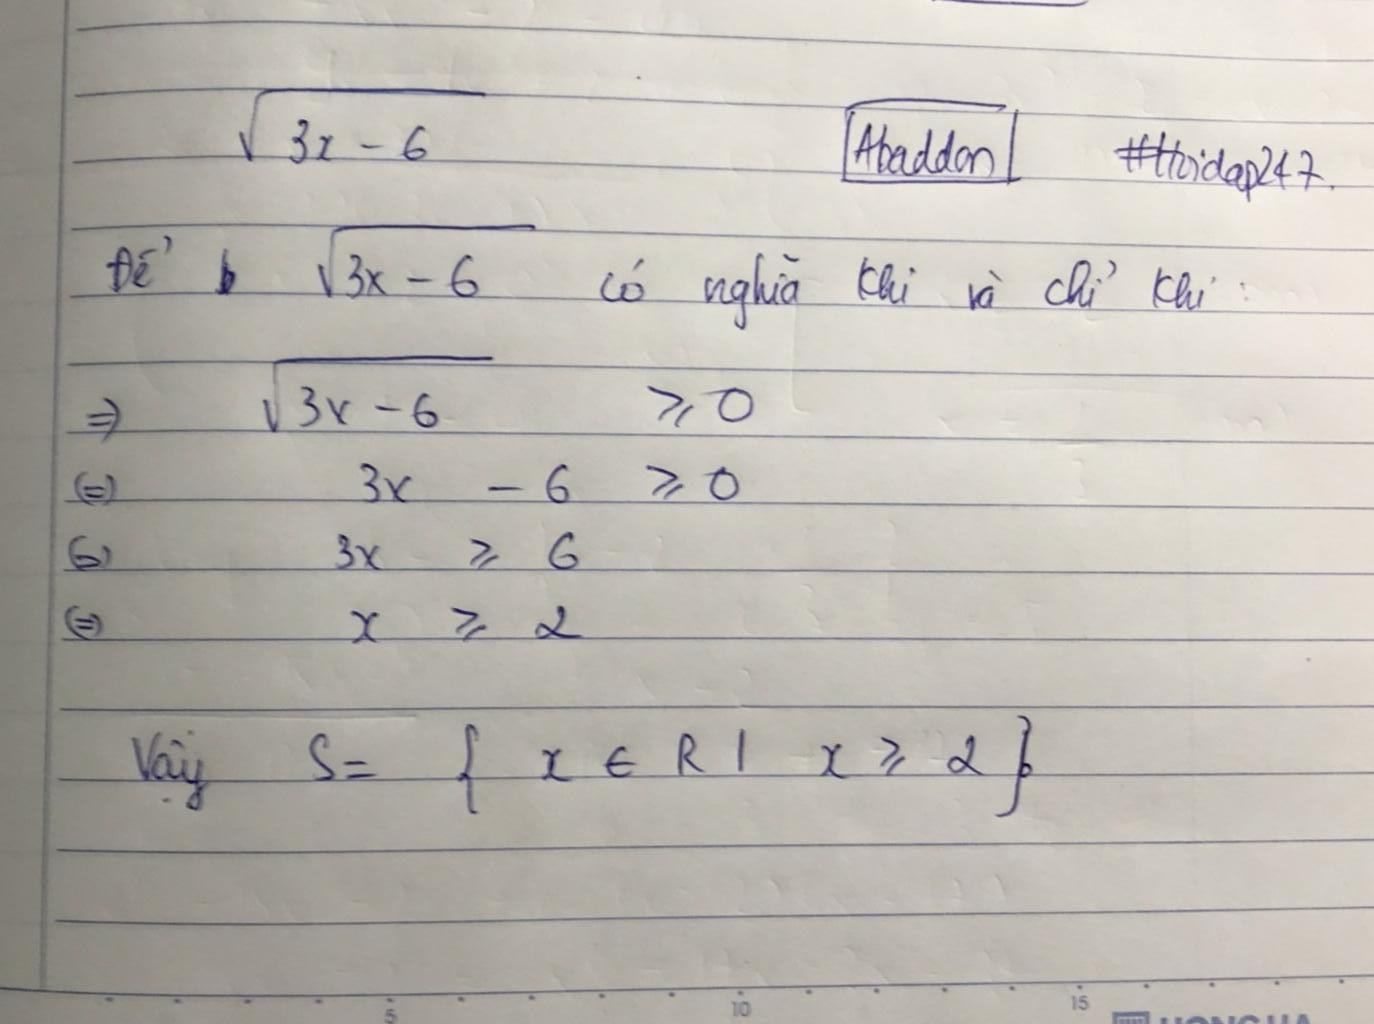 √3x - 6 Abaddon #Hoidap247.
Để √3x - 6 có nghĩa khi và chỉ khi:
⇒ √3x - 6 ≥ 0
⇔ 3x - 6 ≥ 0
⇔ 3x ≥ 6
⇔ x ≥ 2
Vậy S = { x ∈ R | x ≥ 2 }
5 10 15
HONG HA